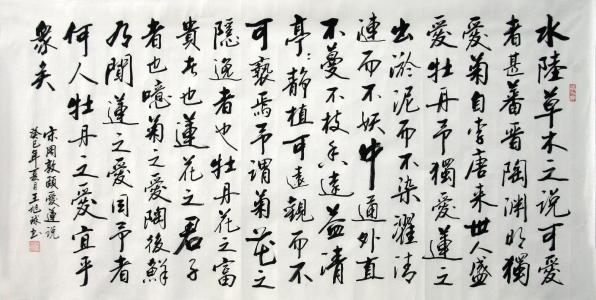 水陸草木之说可愛
者甚蕃晋陶渊明獨
愛菊自李唐来世人盛
愛牡丹予獨愛蓮之
出淤泥而不染濯清
漣而不妖中通外直
不蔓不枝香遠益清
亭:静植可遠觀而不
可褻焉予谓菊花之
隱逸者也牡丹花之富
貴者也蓮花之君子
者也噫菊之愛陶後鮮
有聞蓮之愛同予者
何人牡丹之愛宜乎
衆矣
宋周敦頤愛蓮说
癸巳年夏月王旭书